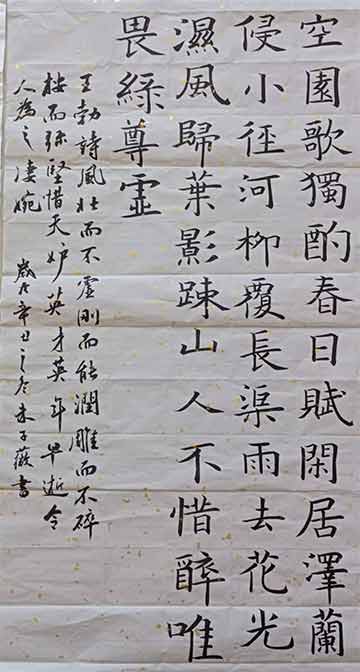 空園歌獨酌春日賦閑居澤蘭
侵小徑河柳覆長渠雨去花光
濕風歸葉影踈山人不惜醉唯
畏綠尊虛
王勃詩風壯而不虛剛而能潤雕而不碎
按而弥堅惜天妒英才英年早逝令
人為之淒婉
歲在辛丑之冬朱子薇書